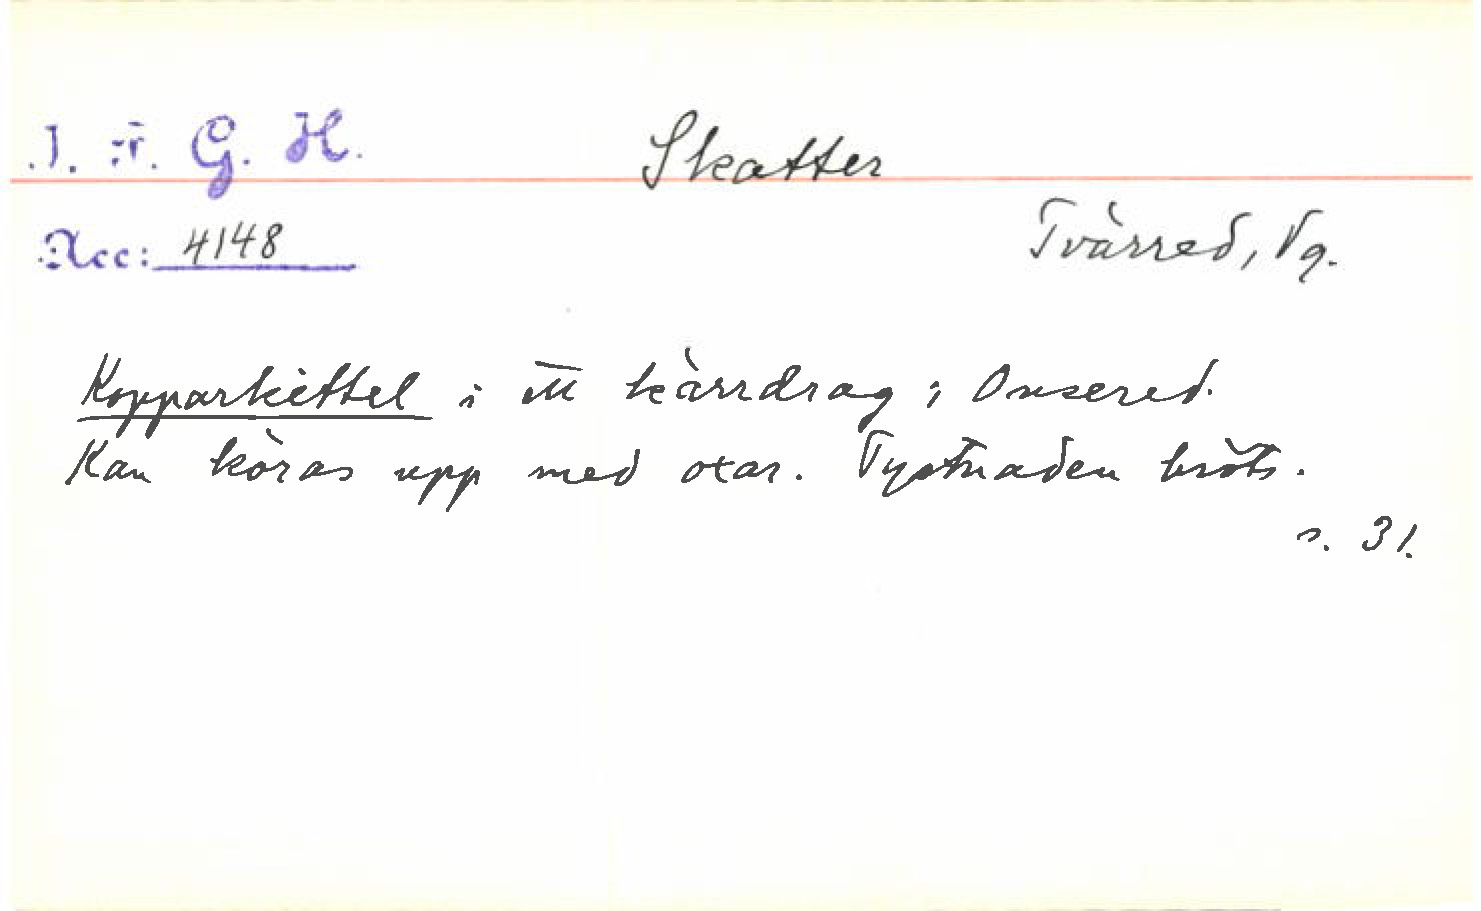 I. F. G. H.
Skatter
Acc: 4148
Tvärred, Vg.
Kopparkittel i ett kärrdrag i Onsered.
Kan köras upp med oxar. Tystnaden bröts.
s. 31.